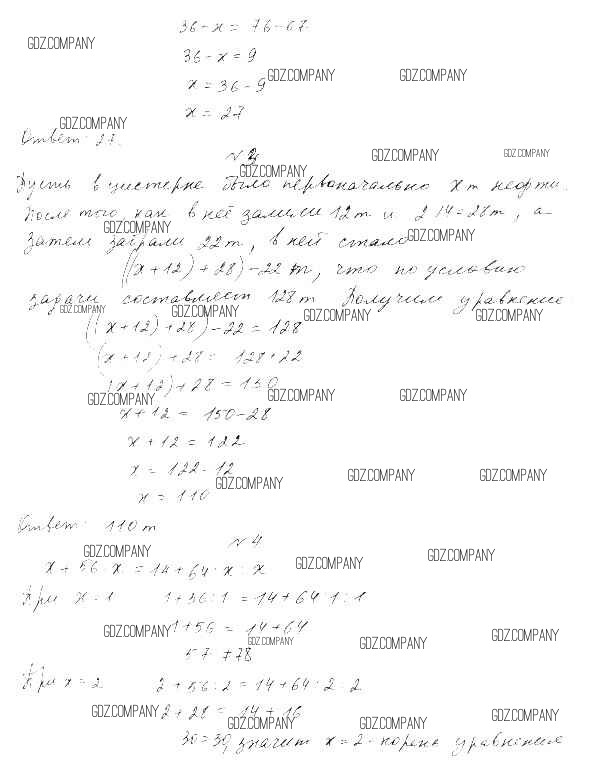 36 - x = 76 - 67
GDZ.COMPANY
36 - x = 9
GDZ.COMPANY GDZ.COMPANY
x = 36 - 9
x = 27
GDZ.COMPANY
Ответ: 27.
№3 GDZ.COMPANY GDZ.COMPANY
GDZ.COMPANY
Пусть в цистерне было первоначально x т нефти.
После того, как в неё залили 12 т и 2·14=28 т, а
GDZ.COMPANY
затем забрали 22 т, в ней стало GDZ.COMPANY
((x+12)+28)-22 т, что по условию
задачи составляет 128 т Получим уравнение
GDZ.COMPANY GDZ.COMPANY GDZ.COMPANY GDZ.COMPANY
((x+12)+28)-22=128
(x+12)+28 = 128+22
(x+12)+28=150
GDZ.COMPANY GDZ.COMPANY GDZ.COMPANY
x+12 = 150-28
x+12=122
x = 122-12 GDZ.COMPANY GDZ.COMPANY
GDZ.COMPANY
x = 110
Ответ: 110 т
№4
GDZ.COMPANY GDZ.COMPANY
x+56:x=14+64:x:x GDZ.COMPANY
При x=1 1+56:1=14+64:1:1
GDZ.COMPANY 1+56 = 14+64 GDZ.COMPANY
GDZ.COMPANY GDZ.COMPANY
57≠78
При x=2 2+56:2=14+64:2:2
GDZ.COMPANY 2+28 = 14+16 GDZ.COMPANY
GDZ.COMPANY GDZ.COMPANY
30=30, значит x=2 - корень уравнения